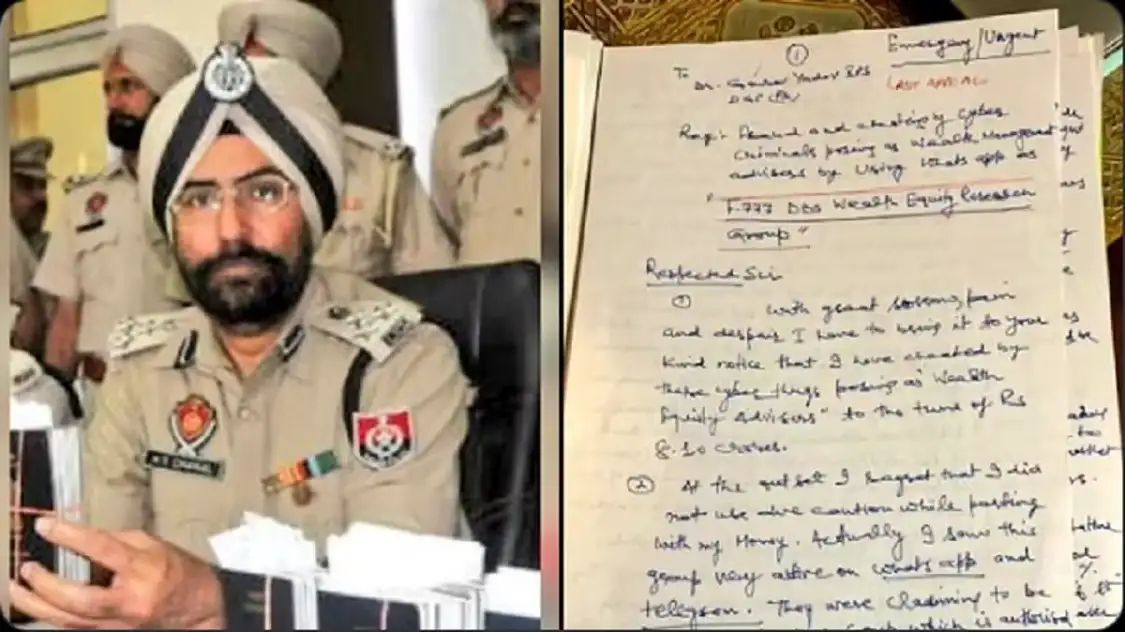 CHAHAL
①
Emergency/Urgent
To
Dr. Gaurav Yadav IPS
LAST APPEAL
DGP (Pb)
Reg: Demand and cheating by Cyber
Criminals posing as Wealth Management
advisers by Using Whats app as
" F-777 DBS Wealth Equity Research
Group"
Respected Sir
① With great
pain
and despair I have to bring it to your
Kind notice that I have cheated by
these cyber thugs posing as "Wealth
Equity Advisers" to the tune of Rs
8.10 Crores.
② At the outset I regret that I did
not use due caution while parting
with my Money. Actually I saw this
group very active on whats app and
telegram. They were claiming to be
which is authorised